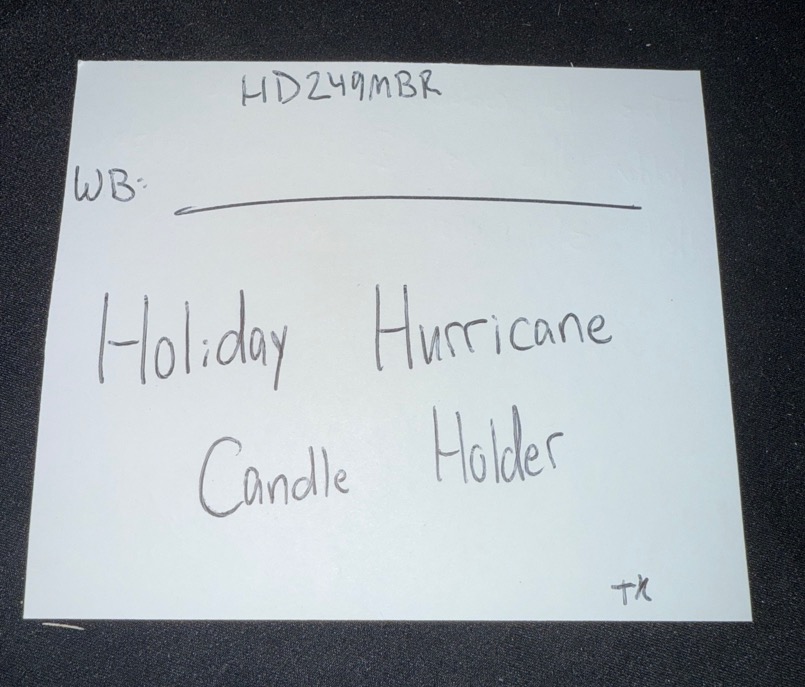 HD249MBR
WB:
Holiday Hurricane
Candle Holder
TK